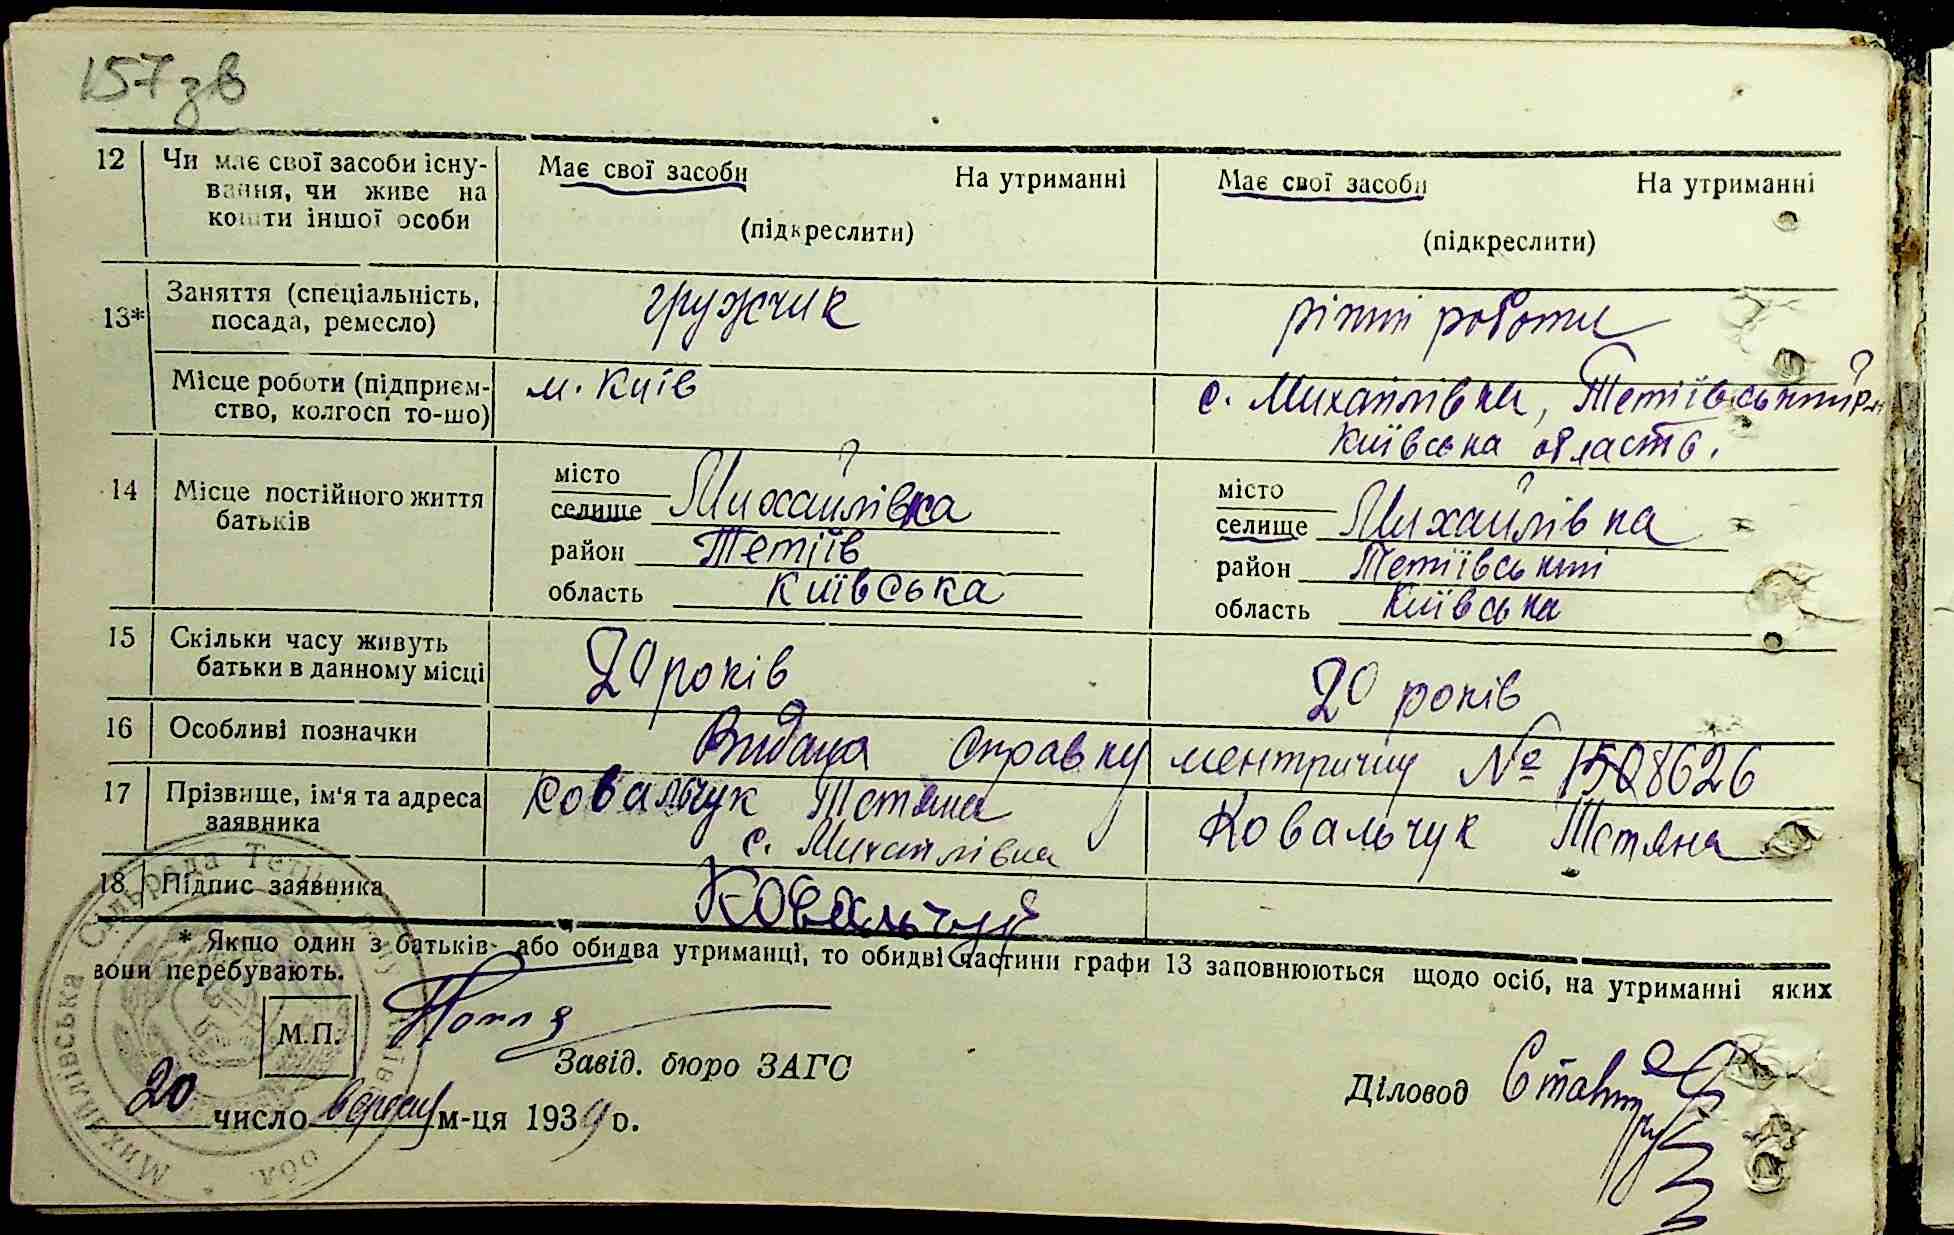 157 зв
12 Чи має свої засоби існу-
вання, чи живе на
кошти іншої особи
Має свої засоби На утриманні
(підкреслити)
Має свої засоби На утриманні
(підкреслити)
13* Заняття (спеціальність,
посада, ремесло)
гружчик
різні роботи
Місце роботи (підприєм-
ство, колгосп то-що)
м. Київ
с. Михайлівка, Тетіївський р-н
Київська область.
14 Місце постійного життя
батьків
місто
селище Михайлівка
район Тетіїв
область Київська
місто
селище Михайлівка
район Тетіївський
область Київська
15 Скільки часу живуть
батьки в данному місці
20 років
20 років
16 Особливі позначки
Видана справку метричну № 1508626
17 Прізвище, ім'я та адреса
заявника
Ковальчук Тетяна
с. Михайлівка
Ковальчук Тетяна
18 Підпис заявника
Ковальчук
* Якщо один з батьків або обидва утриманці, то обидві частини графи 13 заповнюються щодо осіб, на утриманні яких
вони перебувають.
М.П.
Завід. бюро ЗАГС
Діловод
20 число вересня м-ця 1939 р.
Михайлівська Сільрада
обл.